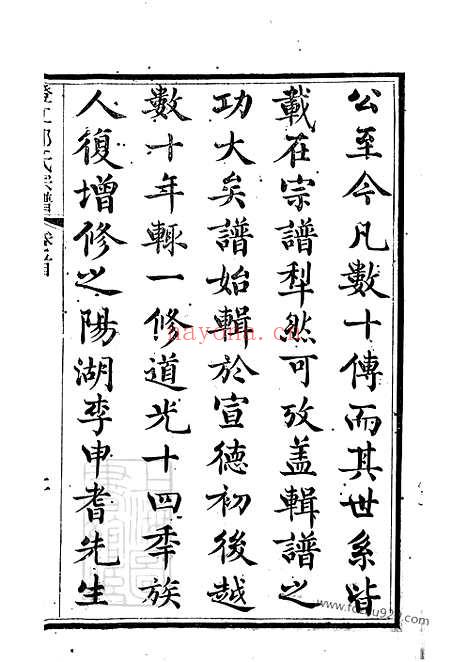 公至今凡數十傳而其世系皆
載在宗譜犁然可攷蓋輯譜之
功大矣譜始輯於宣德初後越
數十年輙一修道光十四秊族
人復增修之陽湖李申耆先生
氏宗譜
nayona.cn